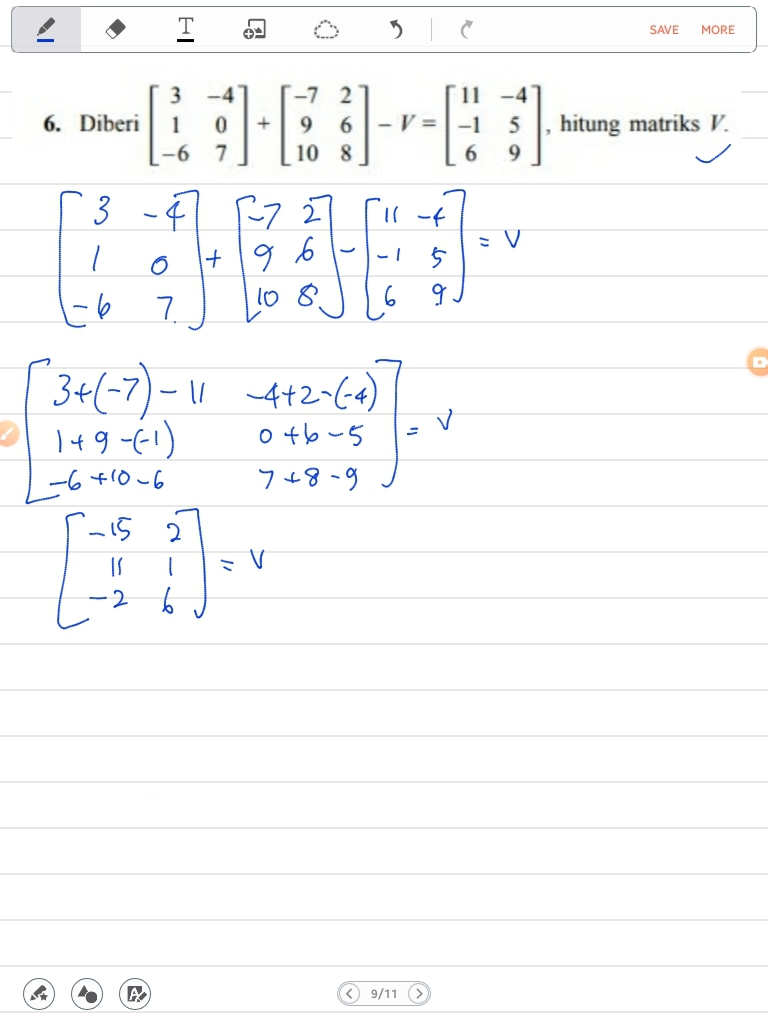 T SAVE MORE
6. Diberi [3 -4; 1 0; -6 7] + [-7 2; 9 6; 10 8] - V = [11 -4; -1 5; 6 9], hitung matriks V.
[3 -4; 1 0; -6 7] + [-7 2; 9 6; 10 8] - [11 -4; -1 5; 6 9] = V
[3+(-7)-11 -4+2-(-4); 1+9-(-1) 0+6-5; -6+10-6 7+8-9] = V
[-15 2; 11 1; -2 6] = V
A 9/11